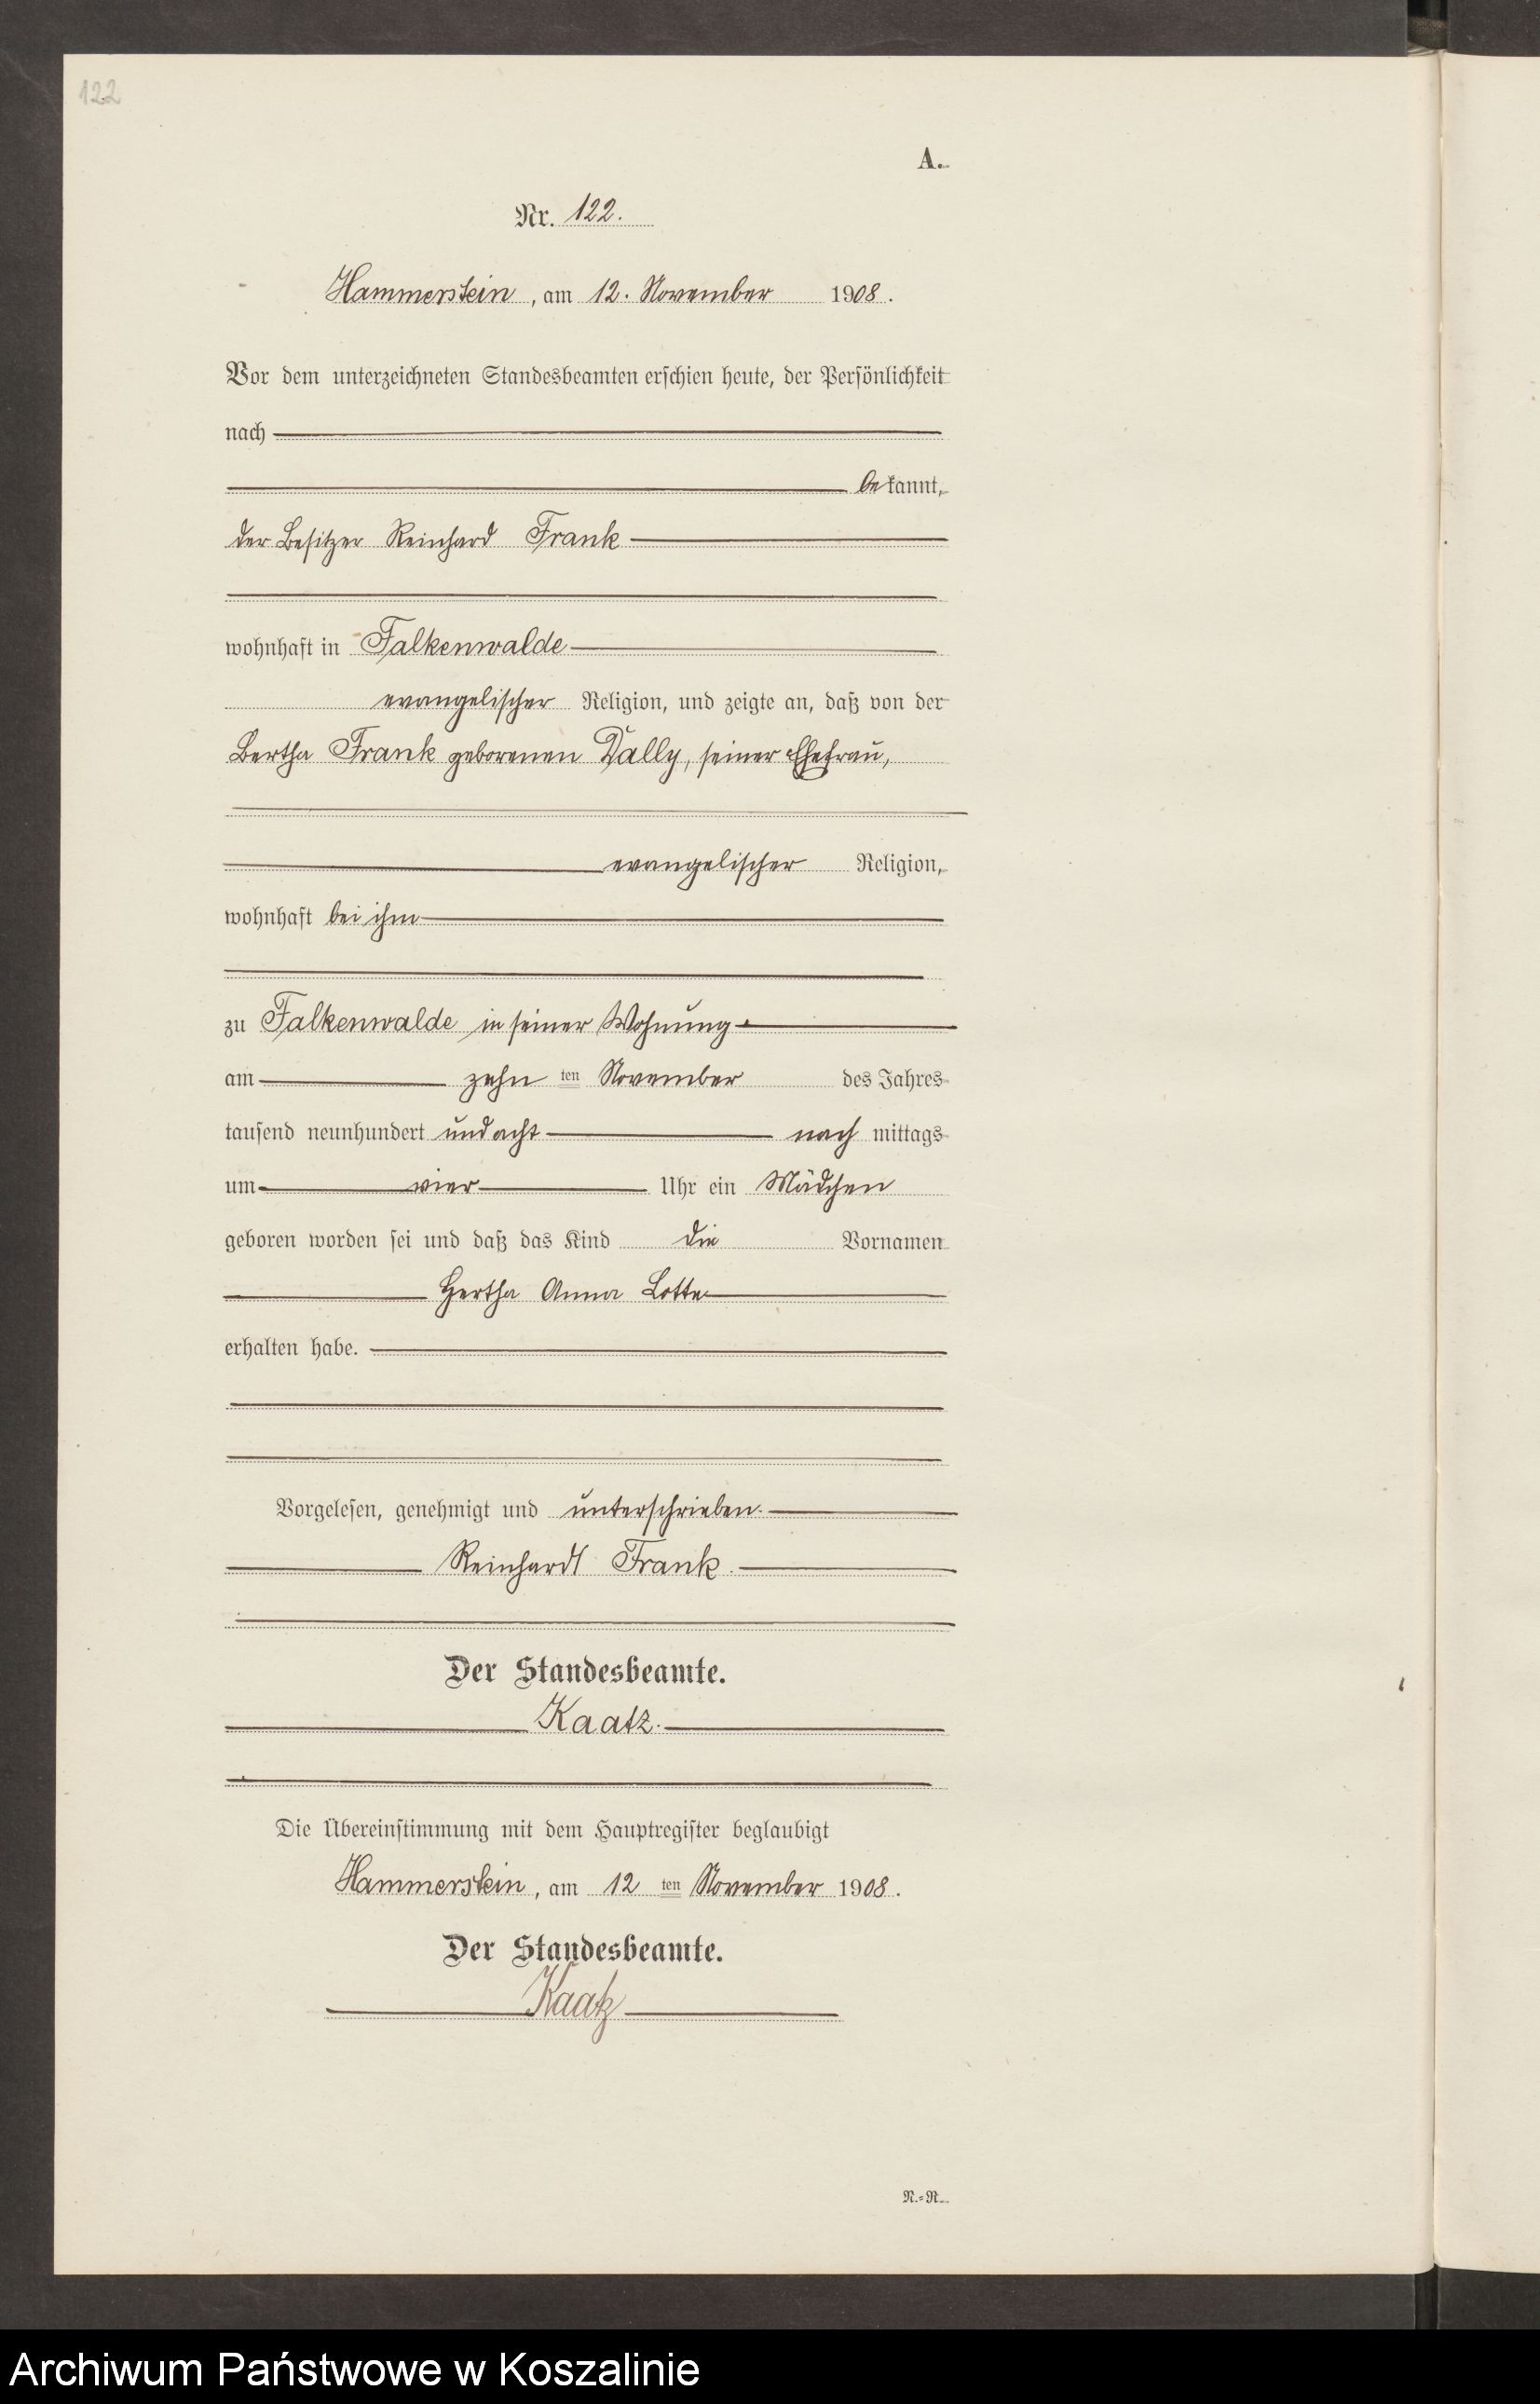 122
A.
Nr. 122.
Hammerstein, am 12. November 1908.
Vor dem unterzeichneten Standesbeamten erschien heute, der Persönlichkeit
nach
bekannt,
der Besitzer Reinhard Frank
wohnhaft in Falkenwalde
evangelischer Religion, und zeigte an, daß von der
Bertha Frank geborenen Dally, seiner Ehefrau,
evangelischer Religion,
wohnhaft bei ihm
zu Falkenwalde in seiner Wohnung
am zehn ten November des Jahres
tausend neunhundert und acht nach mittags
um vier Uhr ein Mädchen
geboren worden sei und daß das Kind die Vornamen
Hertha Anna Lotte
erhalten habe.
Vorgelesen, genehmigt und unterschrieben.
Reinhardt Frank.
Der Standesbeamte.
Kaatz.
Die Übereinstimmung mit dem Hauptregister beglaubigt
Hammerstein, am 12 ten November 1908.
Der Standesbeamte.
Kaatz
N.=R.
Archiwum Państwowe w Koszalinie